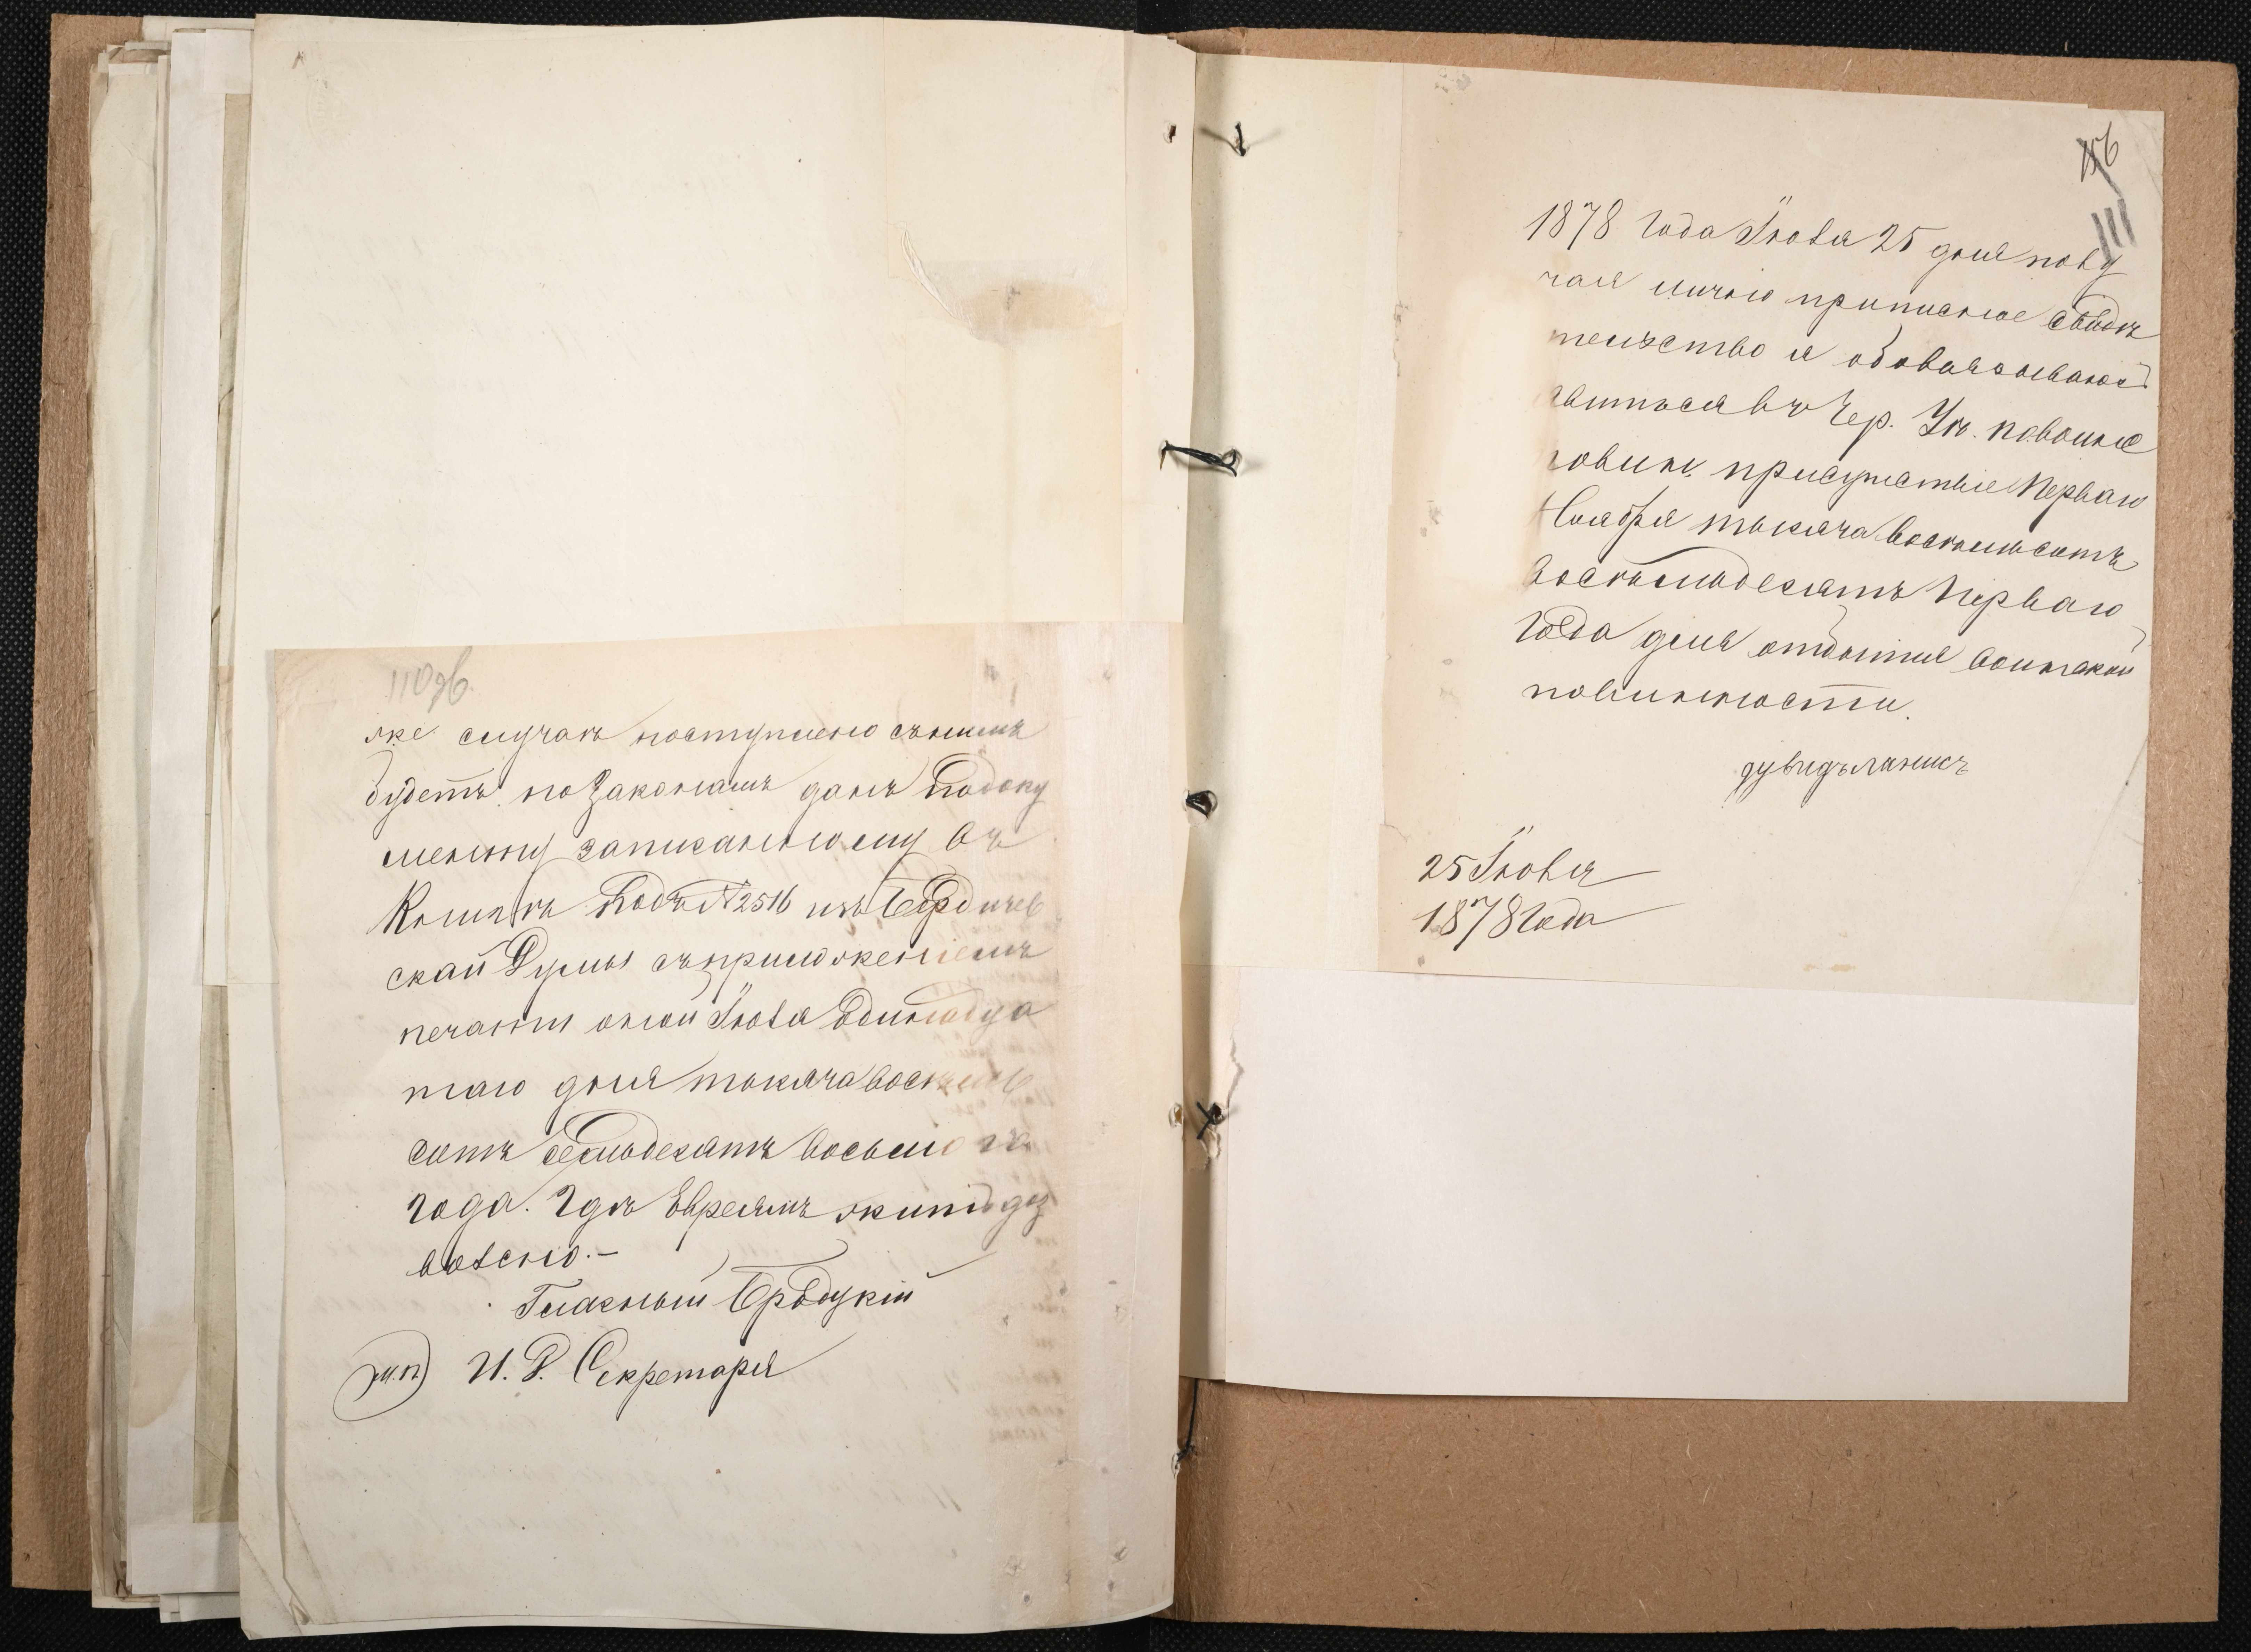 110 об
же случаѣ поступлено съ нимъ
будетъ по Законамъ данъ По доку
менту записанному въ
Книгѣ Подъ № 2516 изъ Бердичев
ской Думы съ приложеніемъ
печати оной Іюля Одинадца
таго дня тысяча восемь
сотъ семьдесятъ восьмого
года. Гдѣ Евреямъ жит. доз
волено.-
Гласный Бродцкій
м.п. И. Д. Секретаря
156
111
1878 Года Іюля 25 дня полу
чая лично приписное Свидѣ
тельство я обовязываюсь
явиться въ Чер. Уѣ. по воинс
повин. присутствіе Перваго
Ноября тысяча восемьсотъ
восемьдесятъ Перваго
Года для отбытия воинской
повинности.
дувидъ
25 Іюля
1878 Года